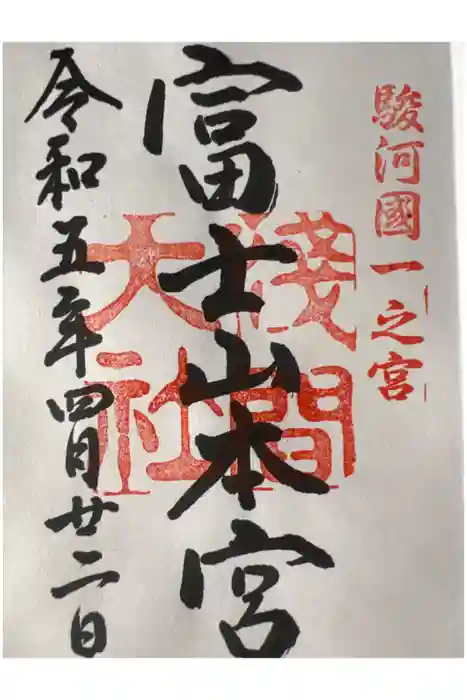 駿河國一之宮
富士山本宮
淺間大社
令和五年四月廿二日